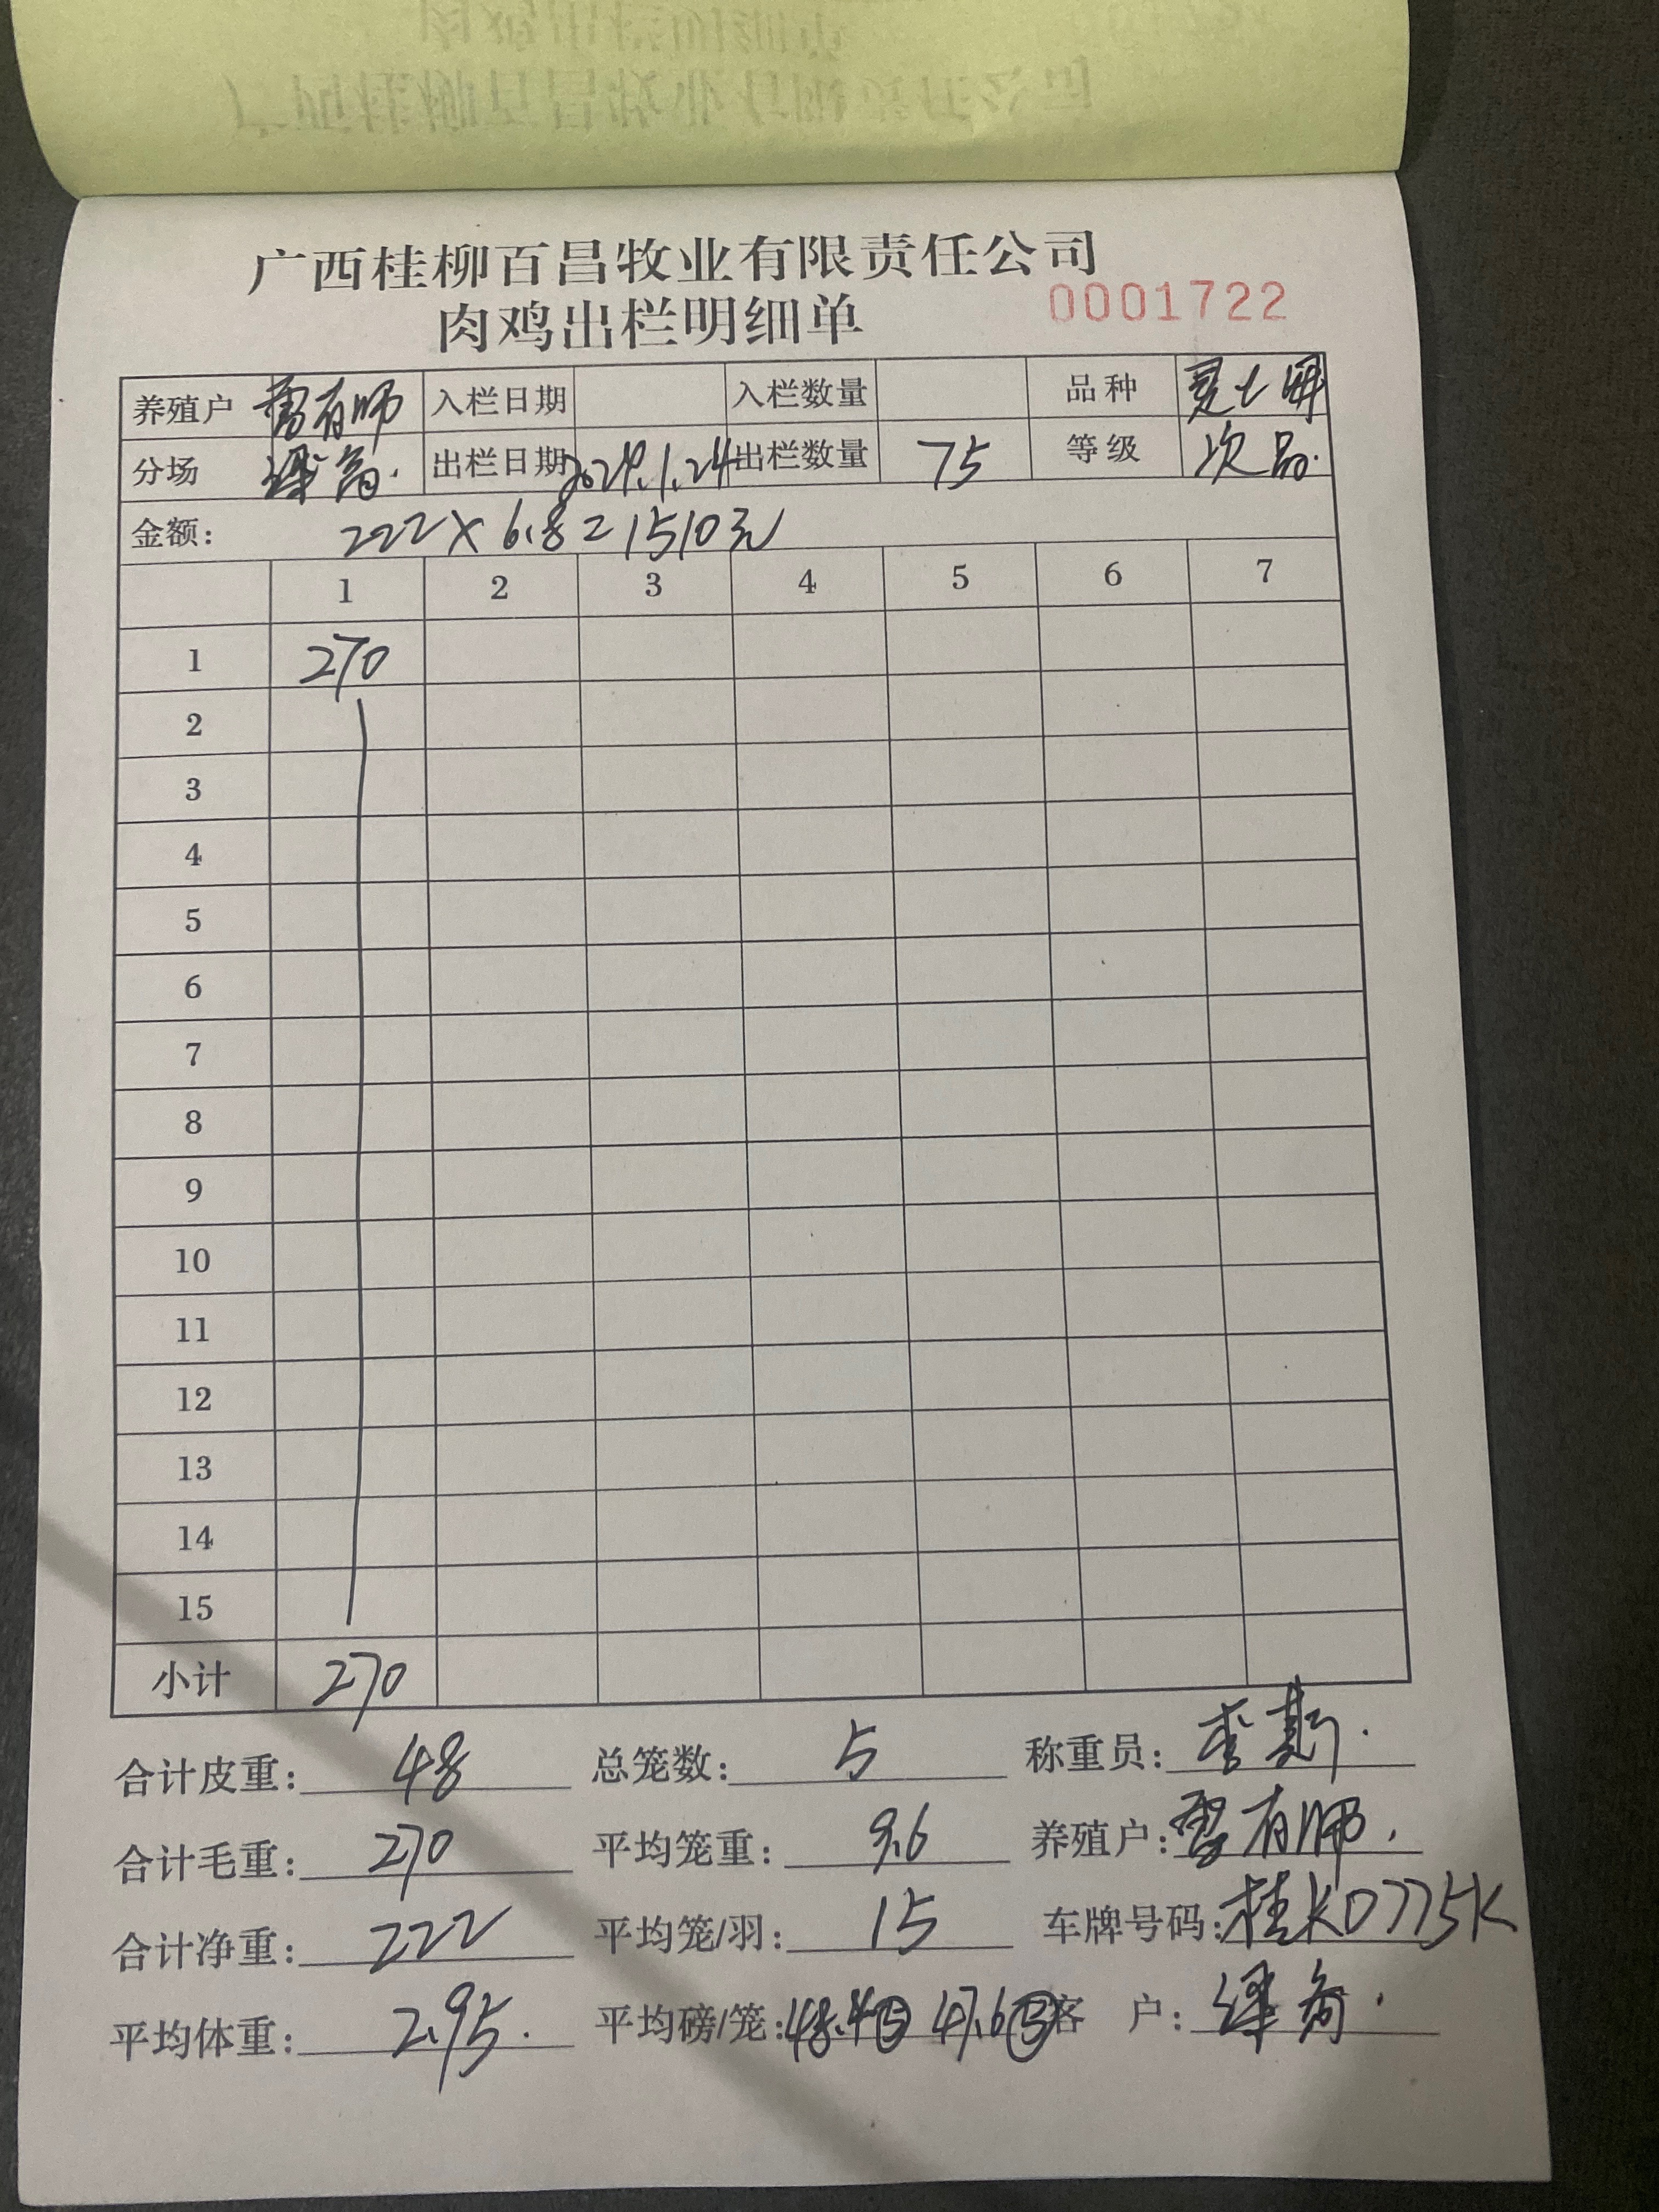 广西桂柳百昌牧业有限责任公司
肉鸡出栏明细单 0001722
养殖户 有师 入栏日期 入栏数量 品种
分场 出栏日期 2024.1.24 出栏数量 75 等级 次品.
金额: 222×6.8=1510元
1 2 3 4 5 6 7
1 270
2
3
4
5
6
7
8
9
10
11
12
13
14
15
小计 270
合计皮重: 48 总笼数: 5 称重员: 李斯.
合计毛重: 270 平均笼重: 9.6 养殖户: 有师.
合计净重: 222 平均笼/羽: 15 车牌号码: 桂KD775K
平均体重: 2.95. 平均磅/笼: 48.4⑤ 47.6⑤ 客 户: